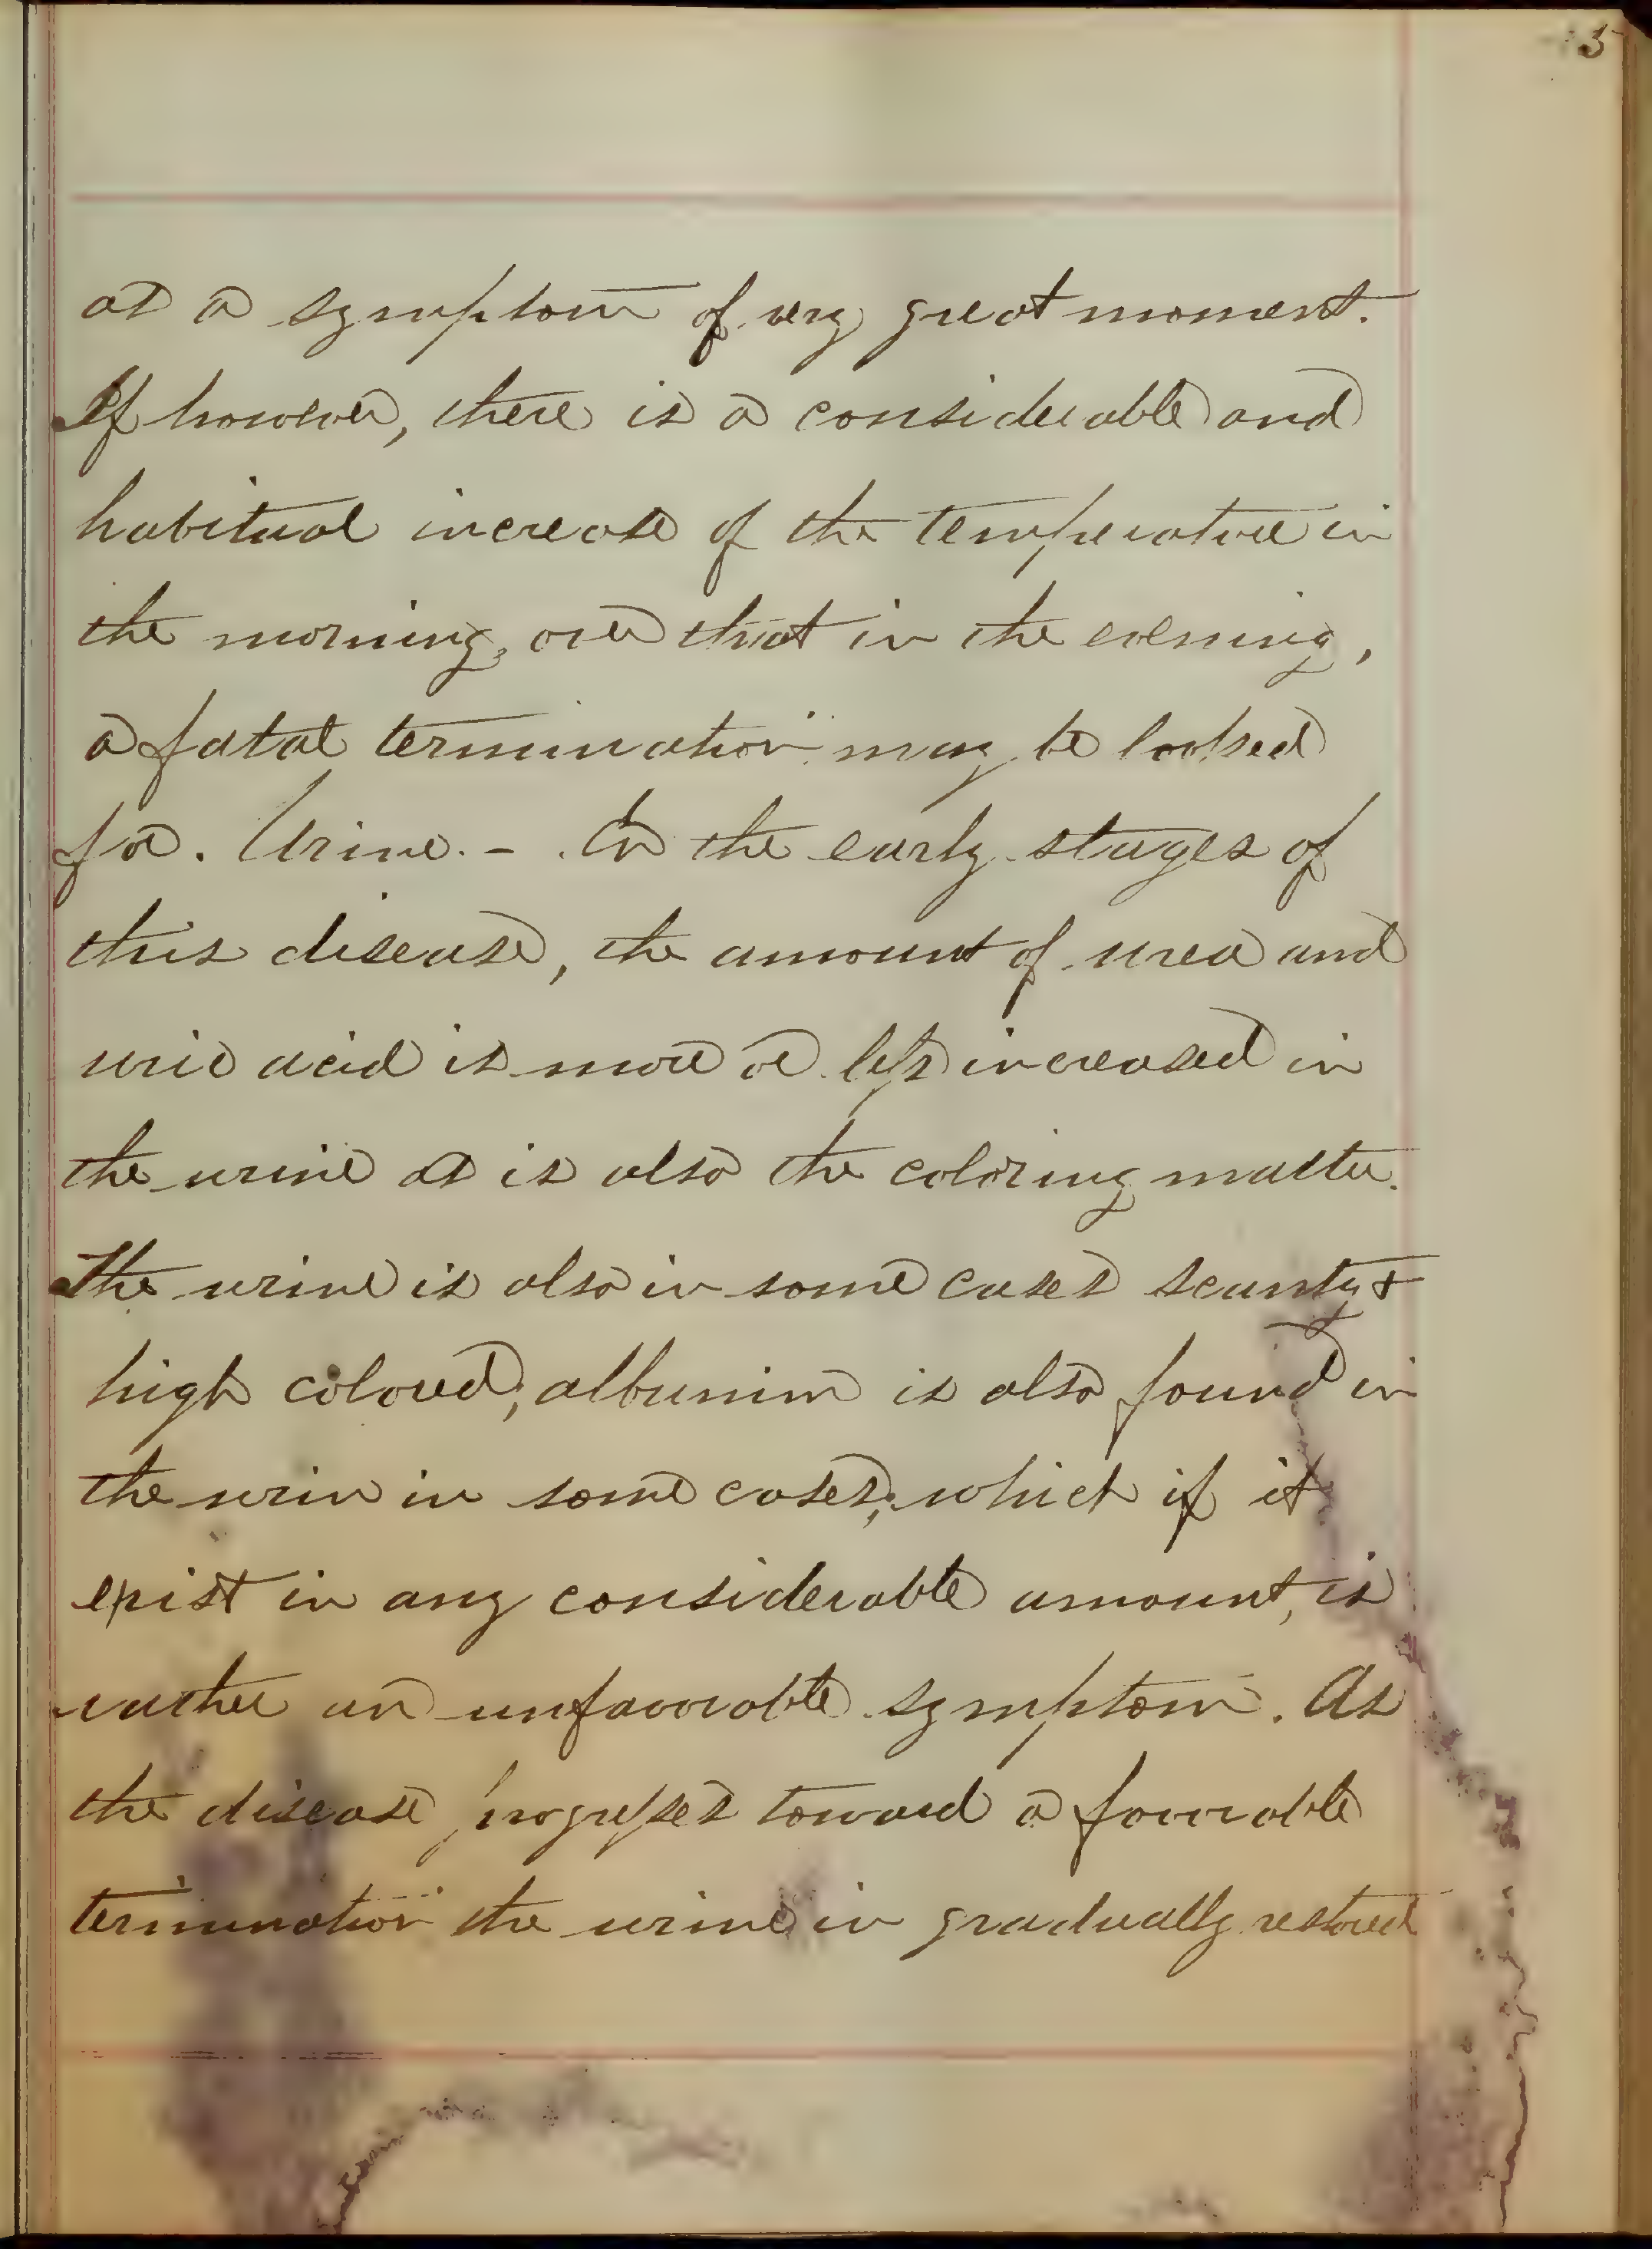 5
as a symptom of very great moment.
If however, there is a considerable and
habitual increase of the temperature in
the morning, over that in the evening,
a fatal termination may be looked
for. Urine. - In the early stages of
this disease, the amount of urea and
uric acid is more or less increased in
the urine as is also the coloring matter.
The urine is also in some cases scanty &
high colored; albumin is also found in
the urin in some cases; which if it
exist in any considerable amount, is
rather an unfavorable symptom. As
the disease progresses toward a favorable
termination the urine in gradually restored